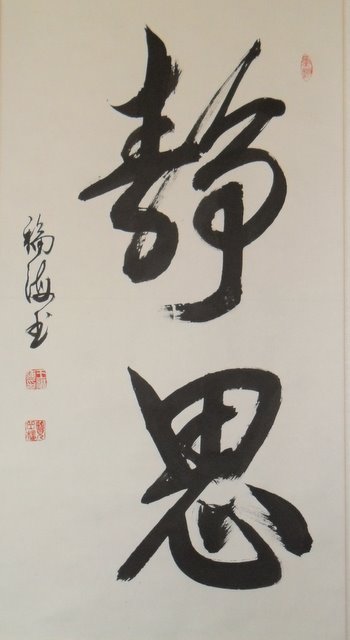 静思
福海书